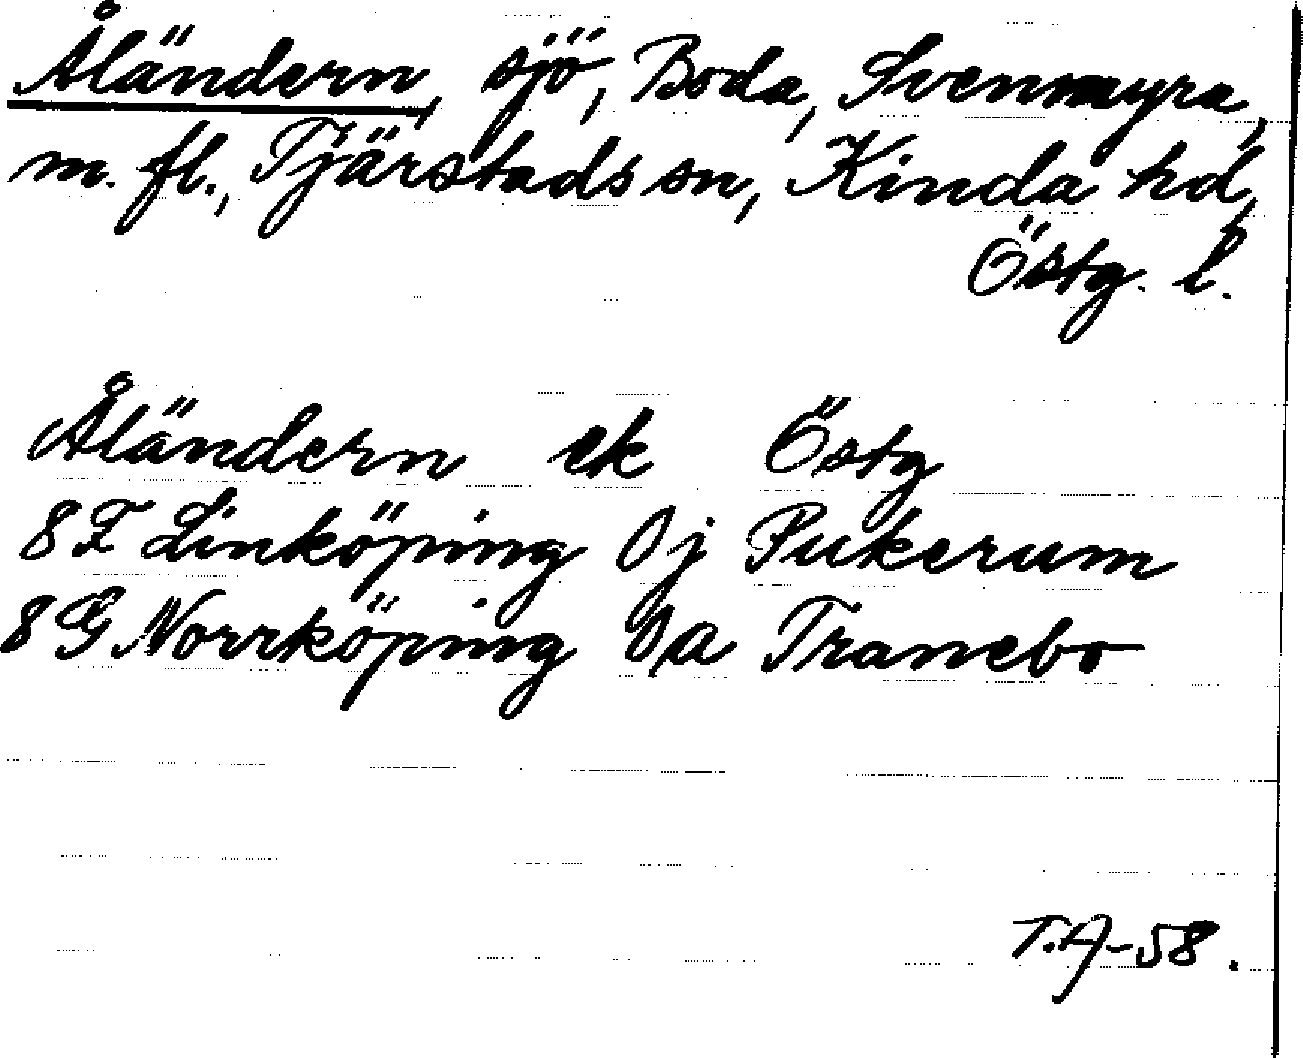 Åländern, sjö, Boda, Svenmyra,
m. fl., Tjärstads sn, Kinda hd,
Östg. l.
Åländern ek Östg
8F Linköping 0j Pukerum
8G Norrköping 0a Tranebo
T.A-58.